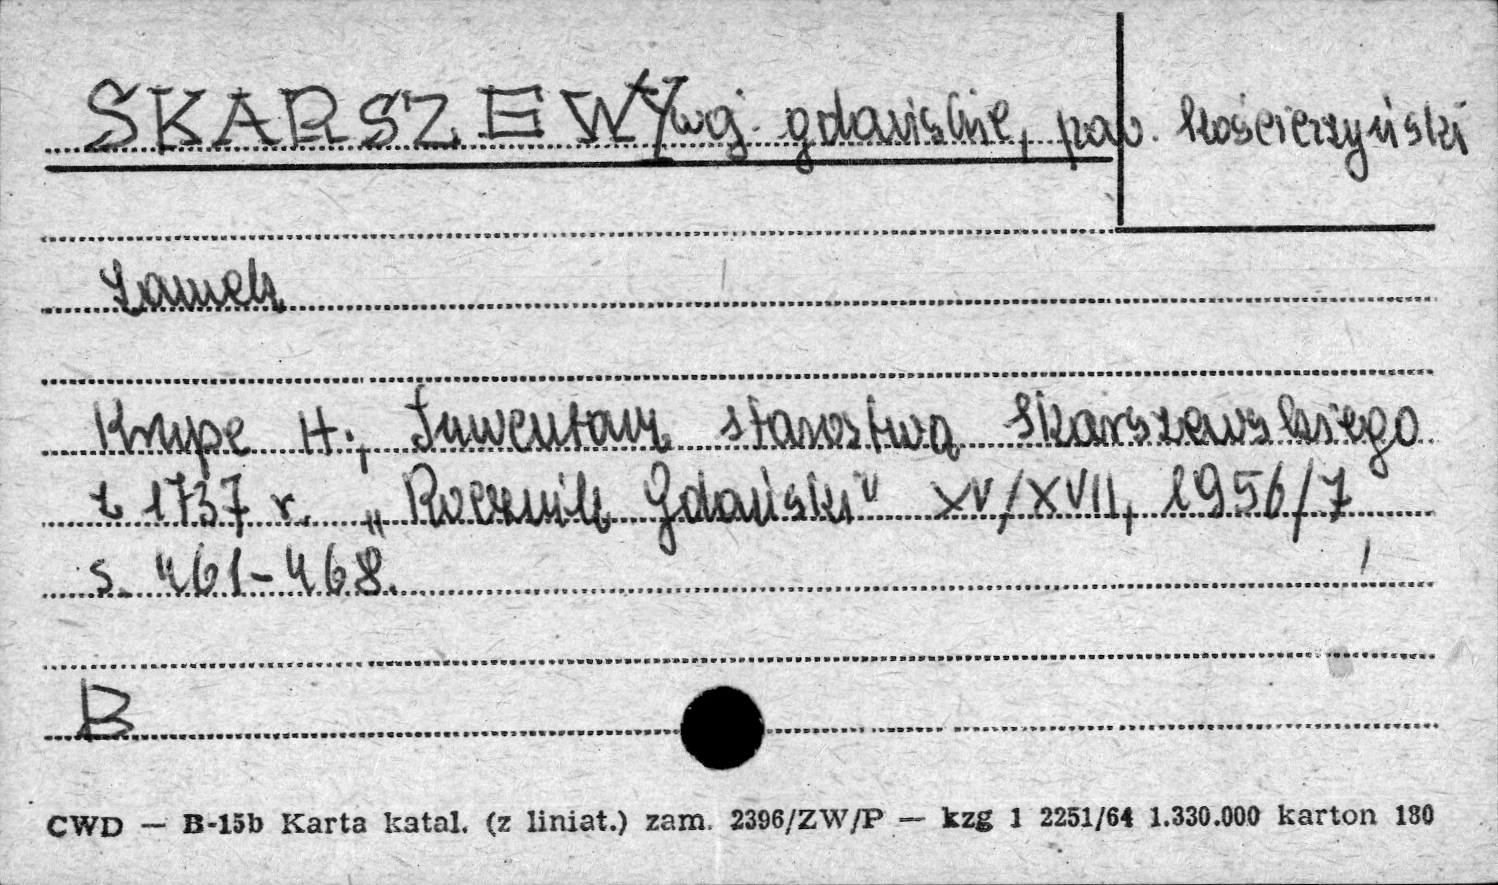 SKARSZEWY woj. gdańskie, pow. kościerzyński
Zamek
Krupe H., Inwentarz starostwa Skarszewskiego
z 1737 r. „Rocznik Gdański" XV/XVII, 1956/7
s. 461-468.
B
CWD — B-15b Karta katal. (z liniat.) zam. 2396/ZW/P — kzg 1 2251/64 1.330.000 karton 180